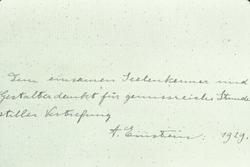 Dem einsamen Seelenkenner und
Gestalter dankt für genussreiche Stunden
stiller Vertiefung
A. Einstein. 1929.